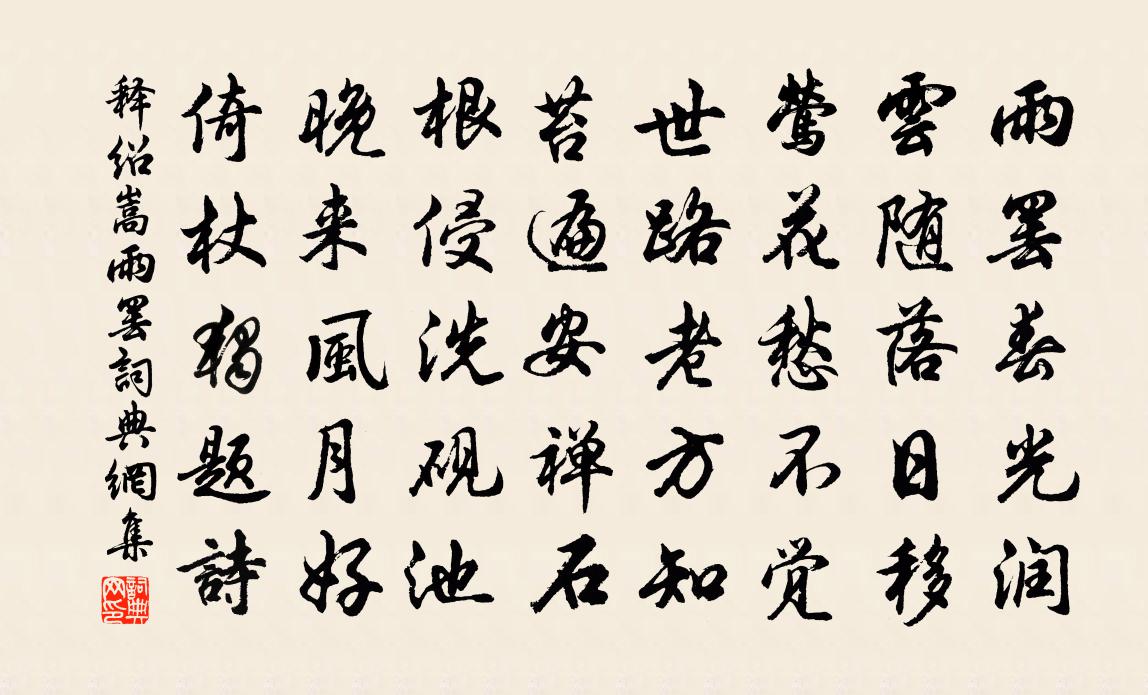 雨罢春光润
雲随落日移
莺花愁不觉
世路老方知
苔遍安禅石
根侵洗砚池
晚来風月好
倚杖独题詩
释绍嵩雨罢詞典網集
詞典网印